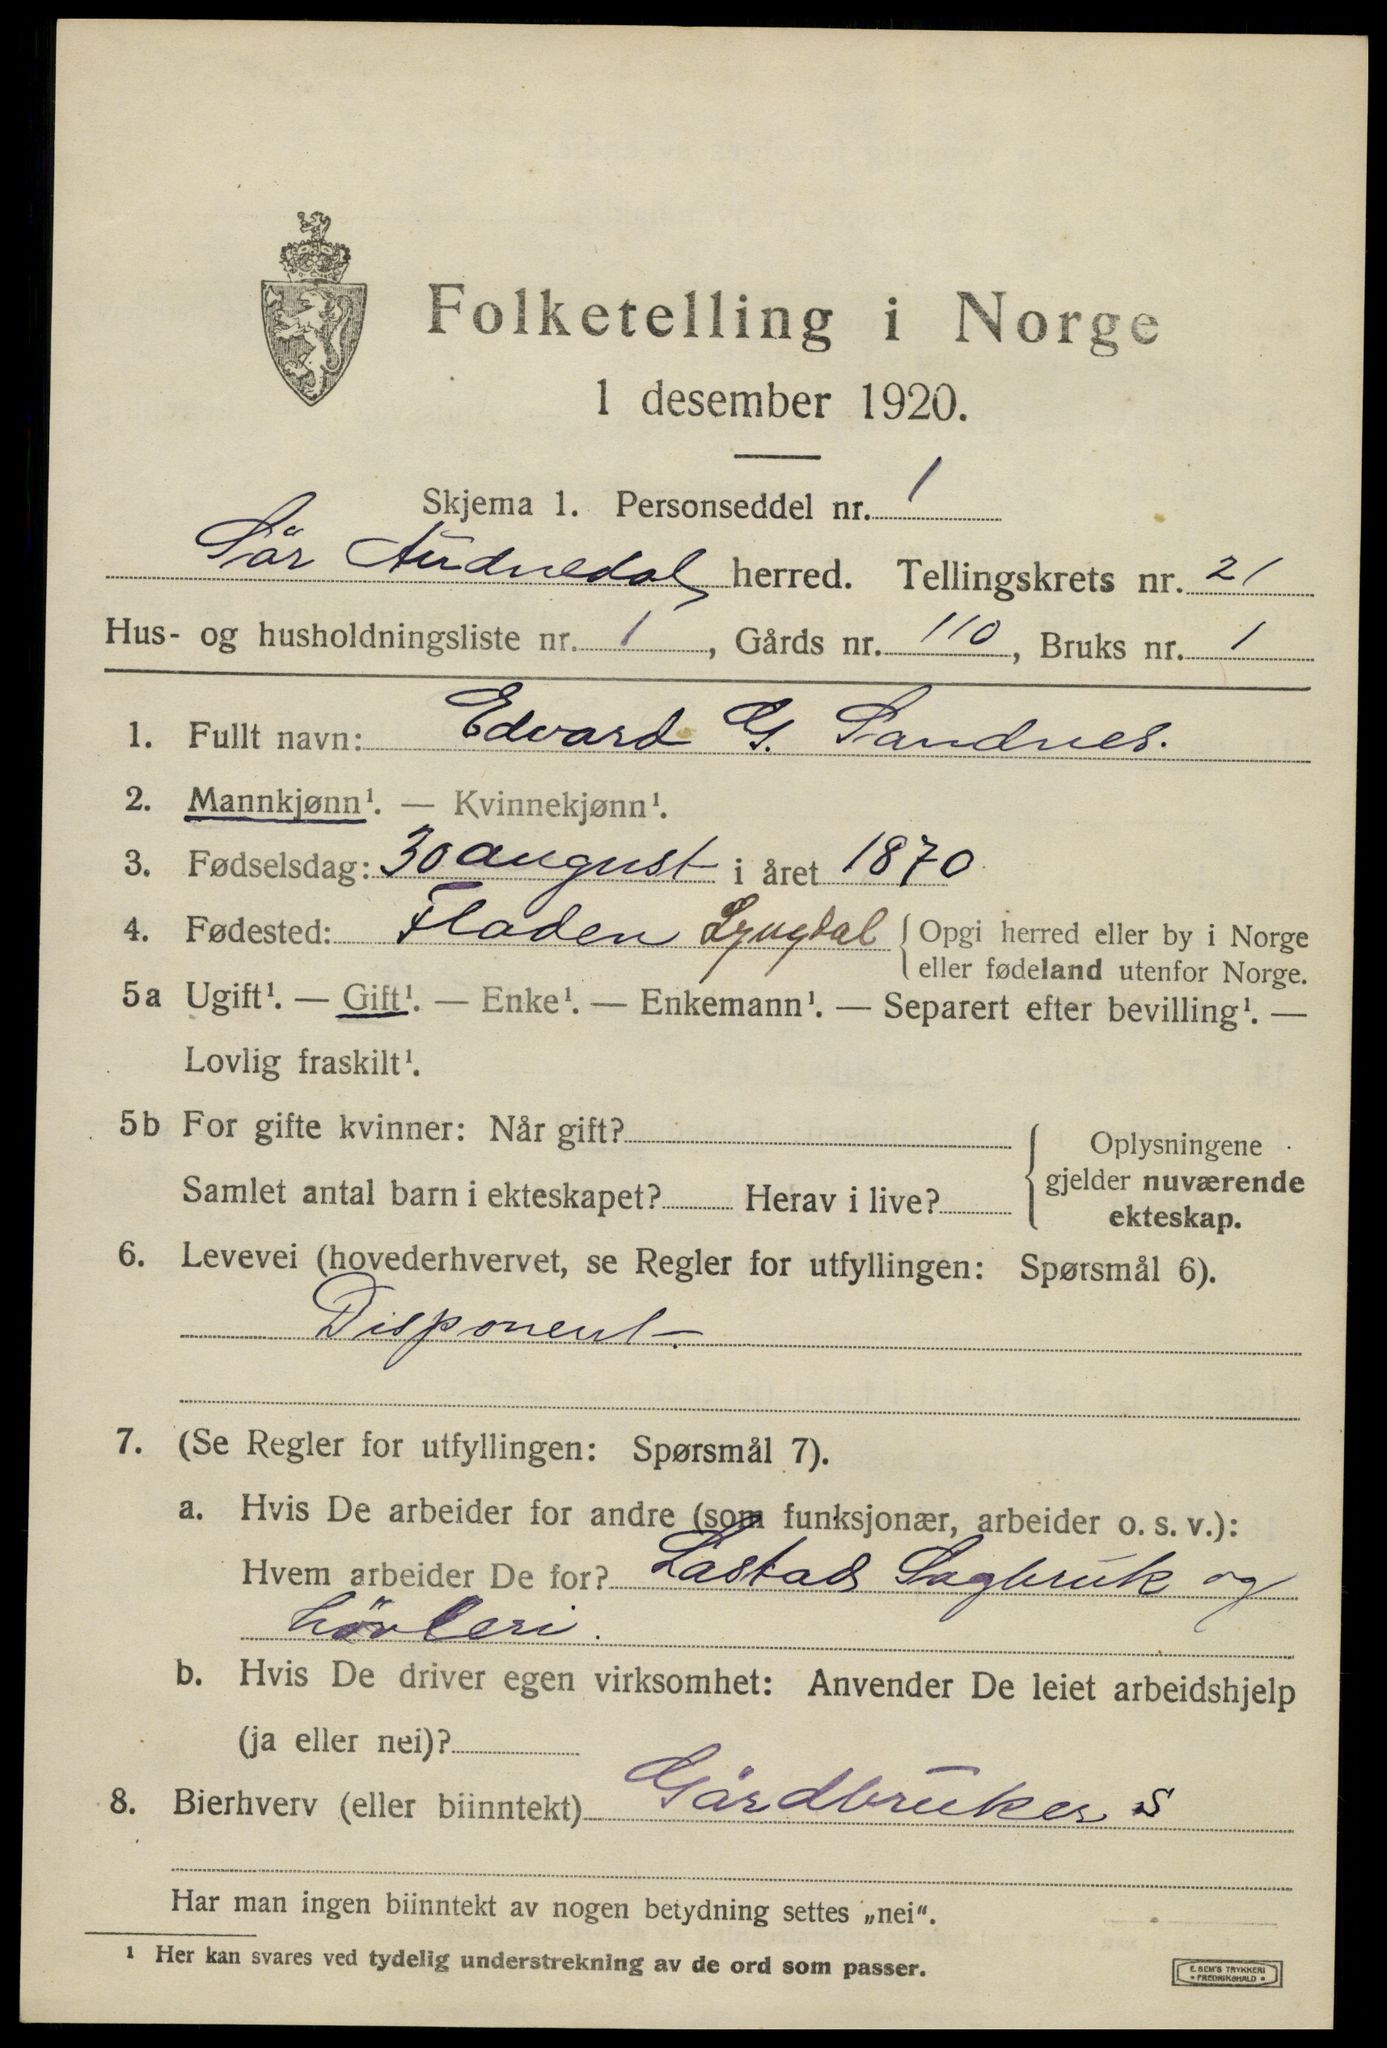 Folketelling i Norge
1 desember 1920.
Skjema 1. Personseddel nr. 1
Sör Audnedal herred. Tellingskrets nr. 21
Hus- og husholdningsliste nr. 1, Gårds nr. 110, Bruks nr. 1
1. Fullt navn: Edvard G. Sandnes.
2. Mannkjønn¹. — Kvinnekjønn¹.
3. Fødselsdag: 30 august i året 1870
4. Fødested: Fladen Lyngdal { Opgi herred eller by i Norge
eller fødeland utenfor Norge.
5a Ugift¹. — Gift¹. — Enke¹. — Enkemann¹. — Separert efter bevilling¹. —
Lovlig fraskilt¹.
5b For gifte kvinner: Når gift?
Samlet antal barn i ekteskapet? Herav i live?
Oplysningene
gjelder nuværende
ekteskap.
6. Levevei (hovederhvervet, se Regler for utfyllingen: Spørsmål 6).
Disponent
7. (Se Regler for utfyllingen: Spørsmål 7).
a. Hvis De arbeider for andre (som funksjonær, arbeider o. s. v.):
Hvem arbeider De for? Lastad Sagbruk og
hövleri.
b. Hvis De driver egen virksomhet: Anvender De leiet arbeidshjelp
(ja eller nei)?
8. Bierhverv (eller biinntekt) Gårdbruker S
Har man ingen biinntekt av nogen betydning settes „nei".
¹ Her kan svares ved tydelig understrekning av de ord som passer.
E. SEM'S TRYKKERI
• FREDRIKSHALD •